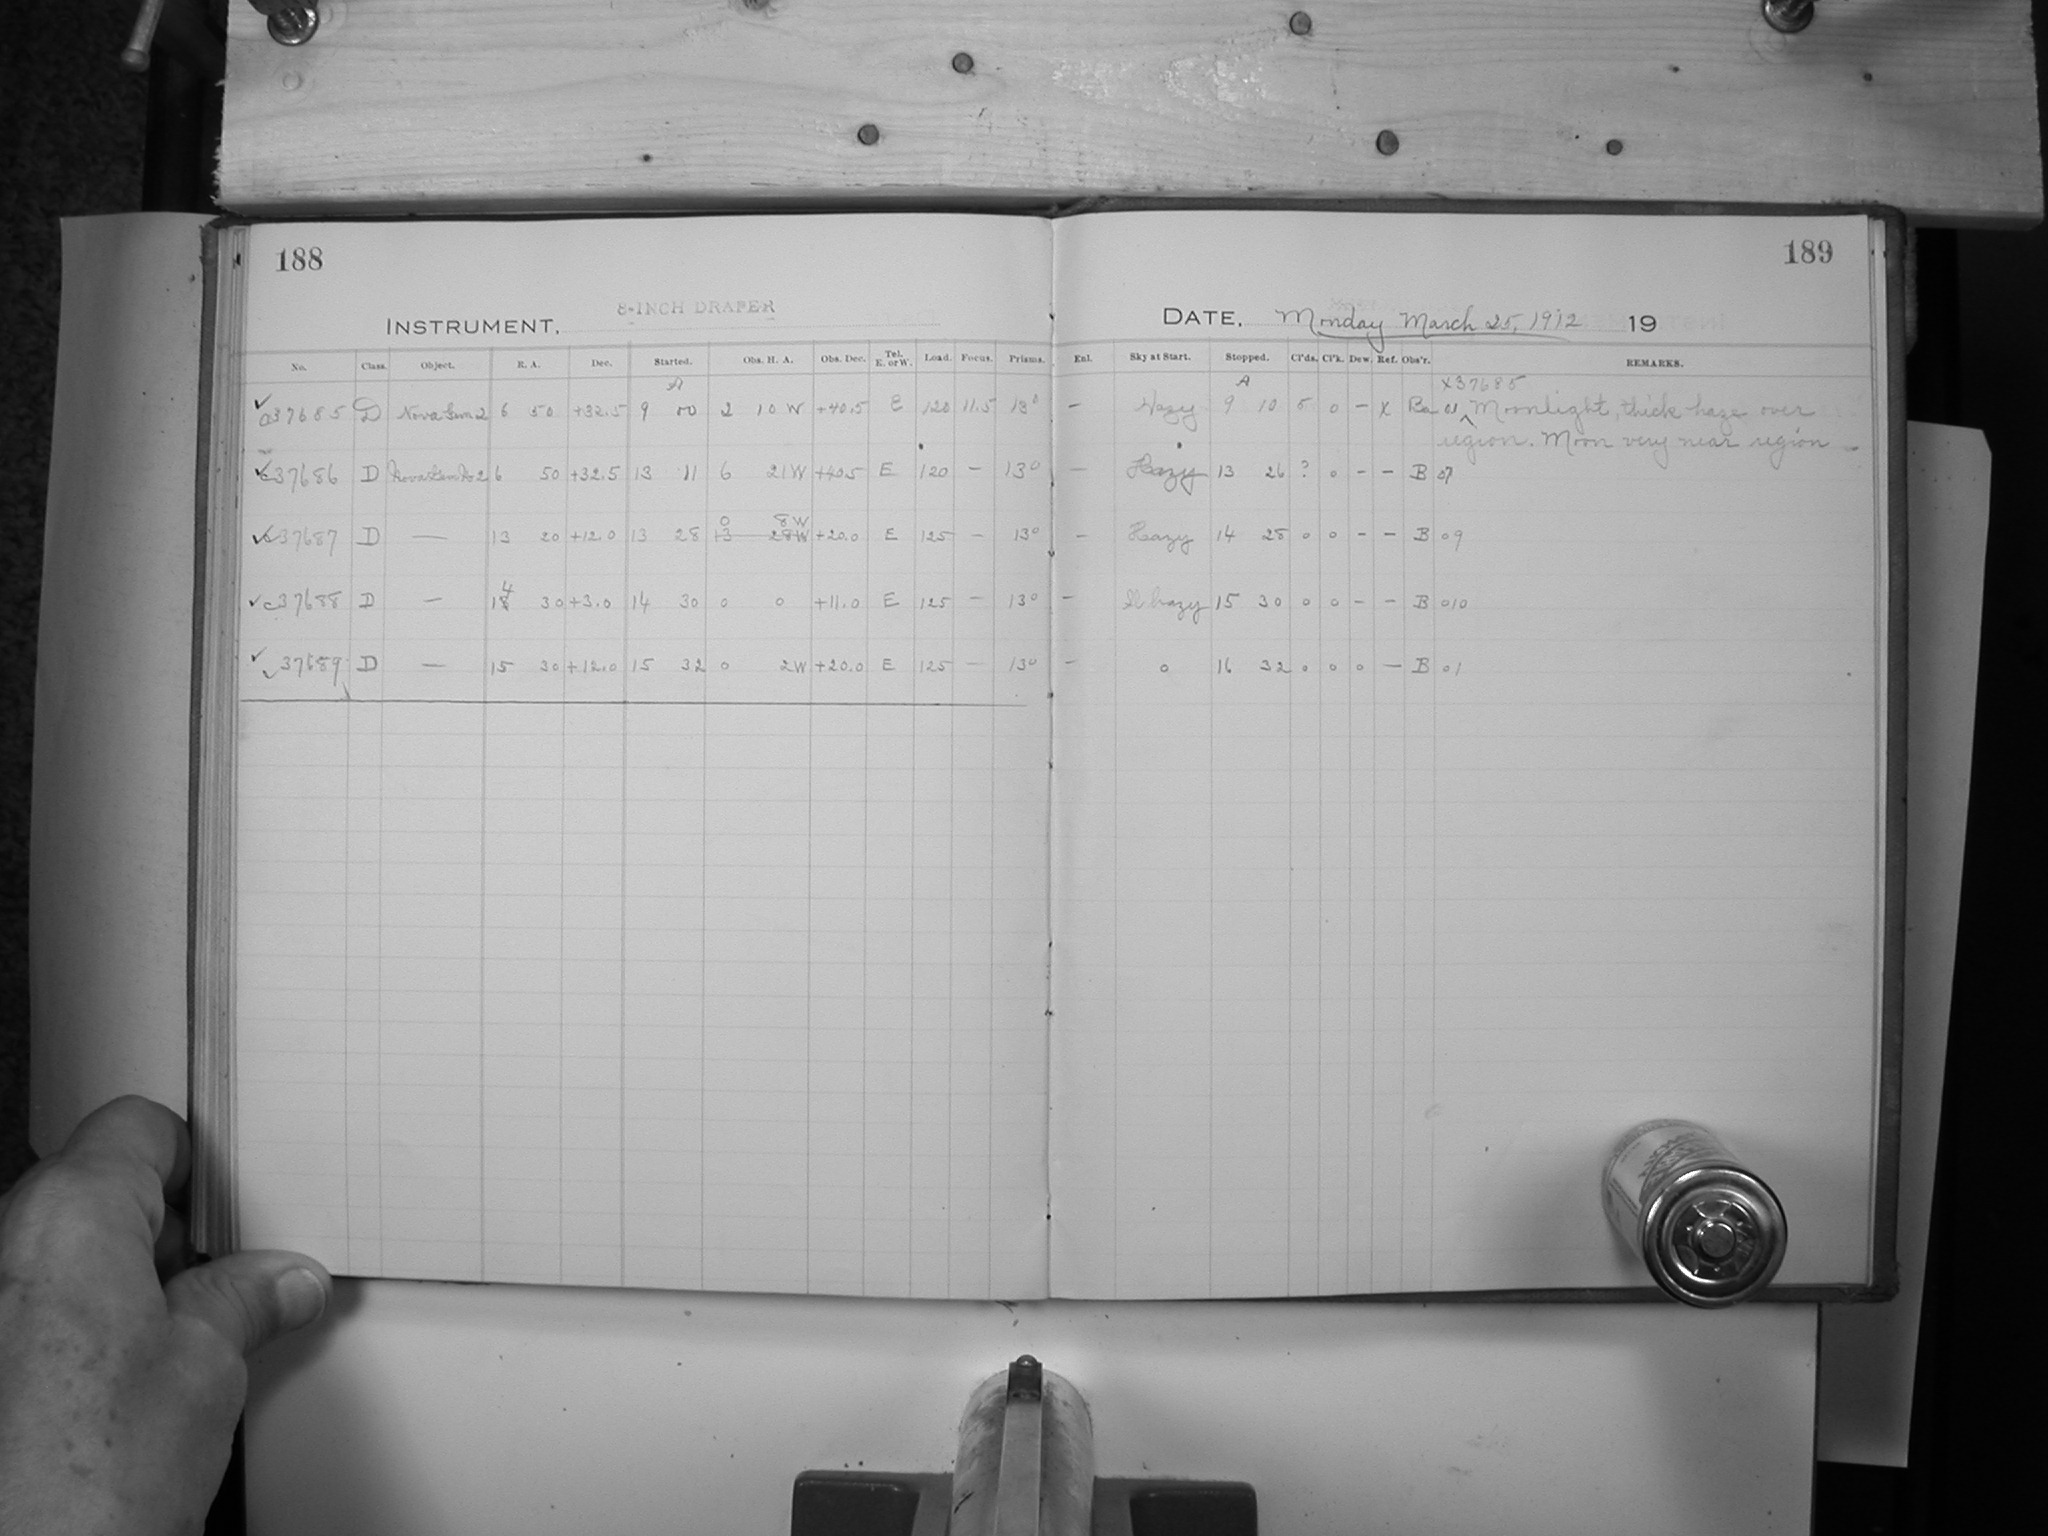 188
189
8-INCH DRAPER
INSTRUMENT,
DATE, Monday March 25, 1912 19
No. Class. Object. R. A. Dec. Started. Obs. H. A. Obs. Dec. Tel. E. or W. Load. Focus. Prisms. Enl. Sky at Start. Stopped. Cl'ds. Cl'k. Dew. Ref. Obs'r. REMARKS.
A A X37685
✓ c37685 D Nova Gem 2 6 50 +32.5 9 00 2 10 W +40.5 E 120 11.5 13° – Hazy 9 10 5 0 – X Ba 01 ^ Moonlight, thick haze over
region. Moon very near region
✓ c37686 D Nova Gem No 2 6 50 +32.5 13 11 6 21W +40.5 E 120 – 13° – Hazy 13 26 ? 0 – – B 07
0 8W
✓ c37687 D — 13 20 +12.0 13 28 13 28W +20.0 E 125 – 13° – Hazy 14 28 0 0 – – B 09
4
✓ c37688 D — 18 30 +3.0 14 30 0 0 +11.0 E 125 – 13° – Sl hazy 15 30 0 0 – – B 010
✓ c37689 D — 15 30 +12.0 15 32 0 2W +20.0 E 125 – 13° – 0 16 32 0 0 0 — B 01